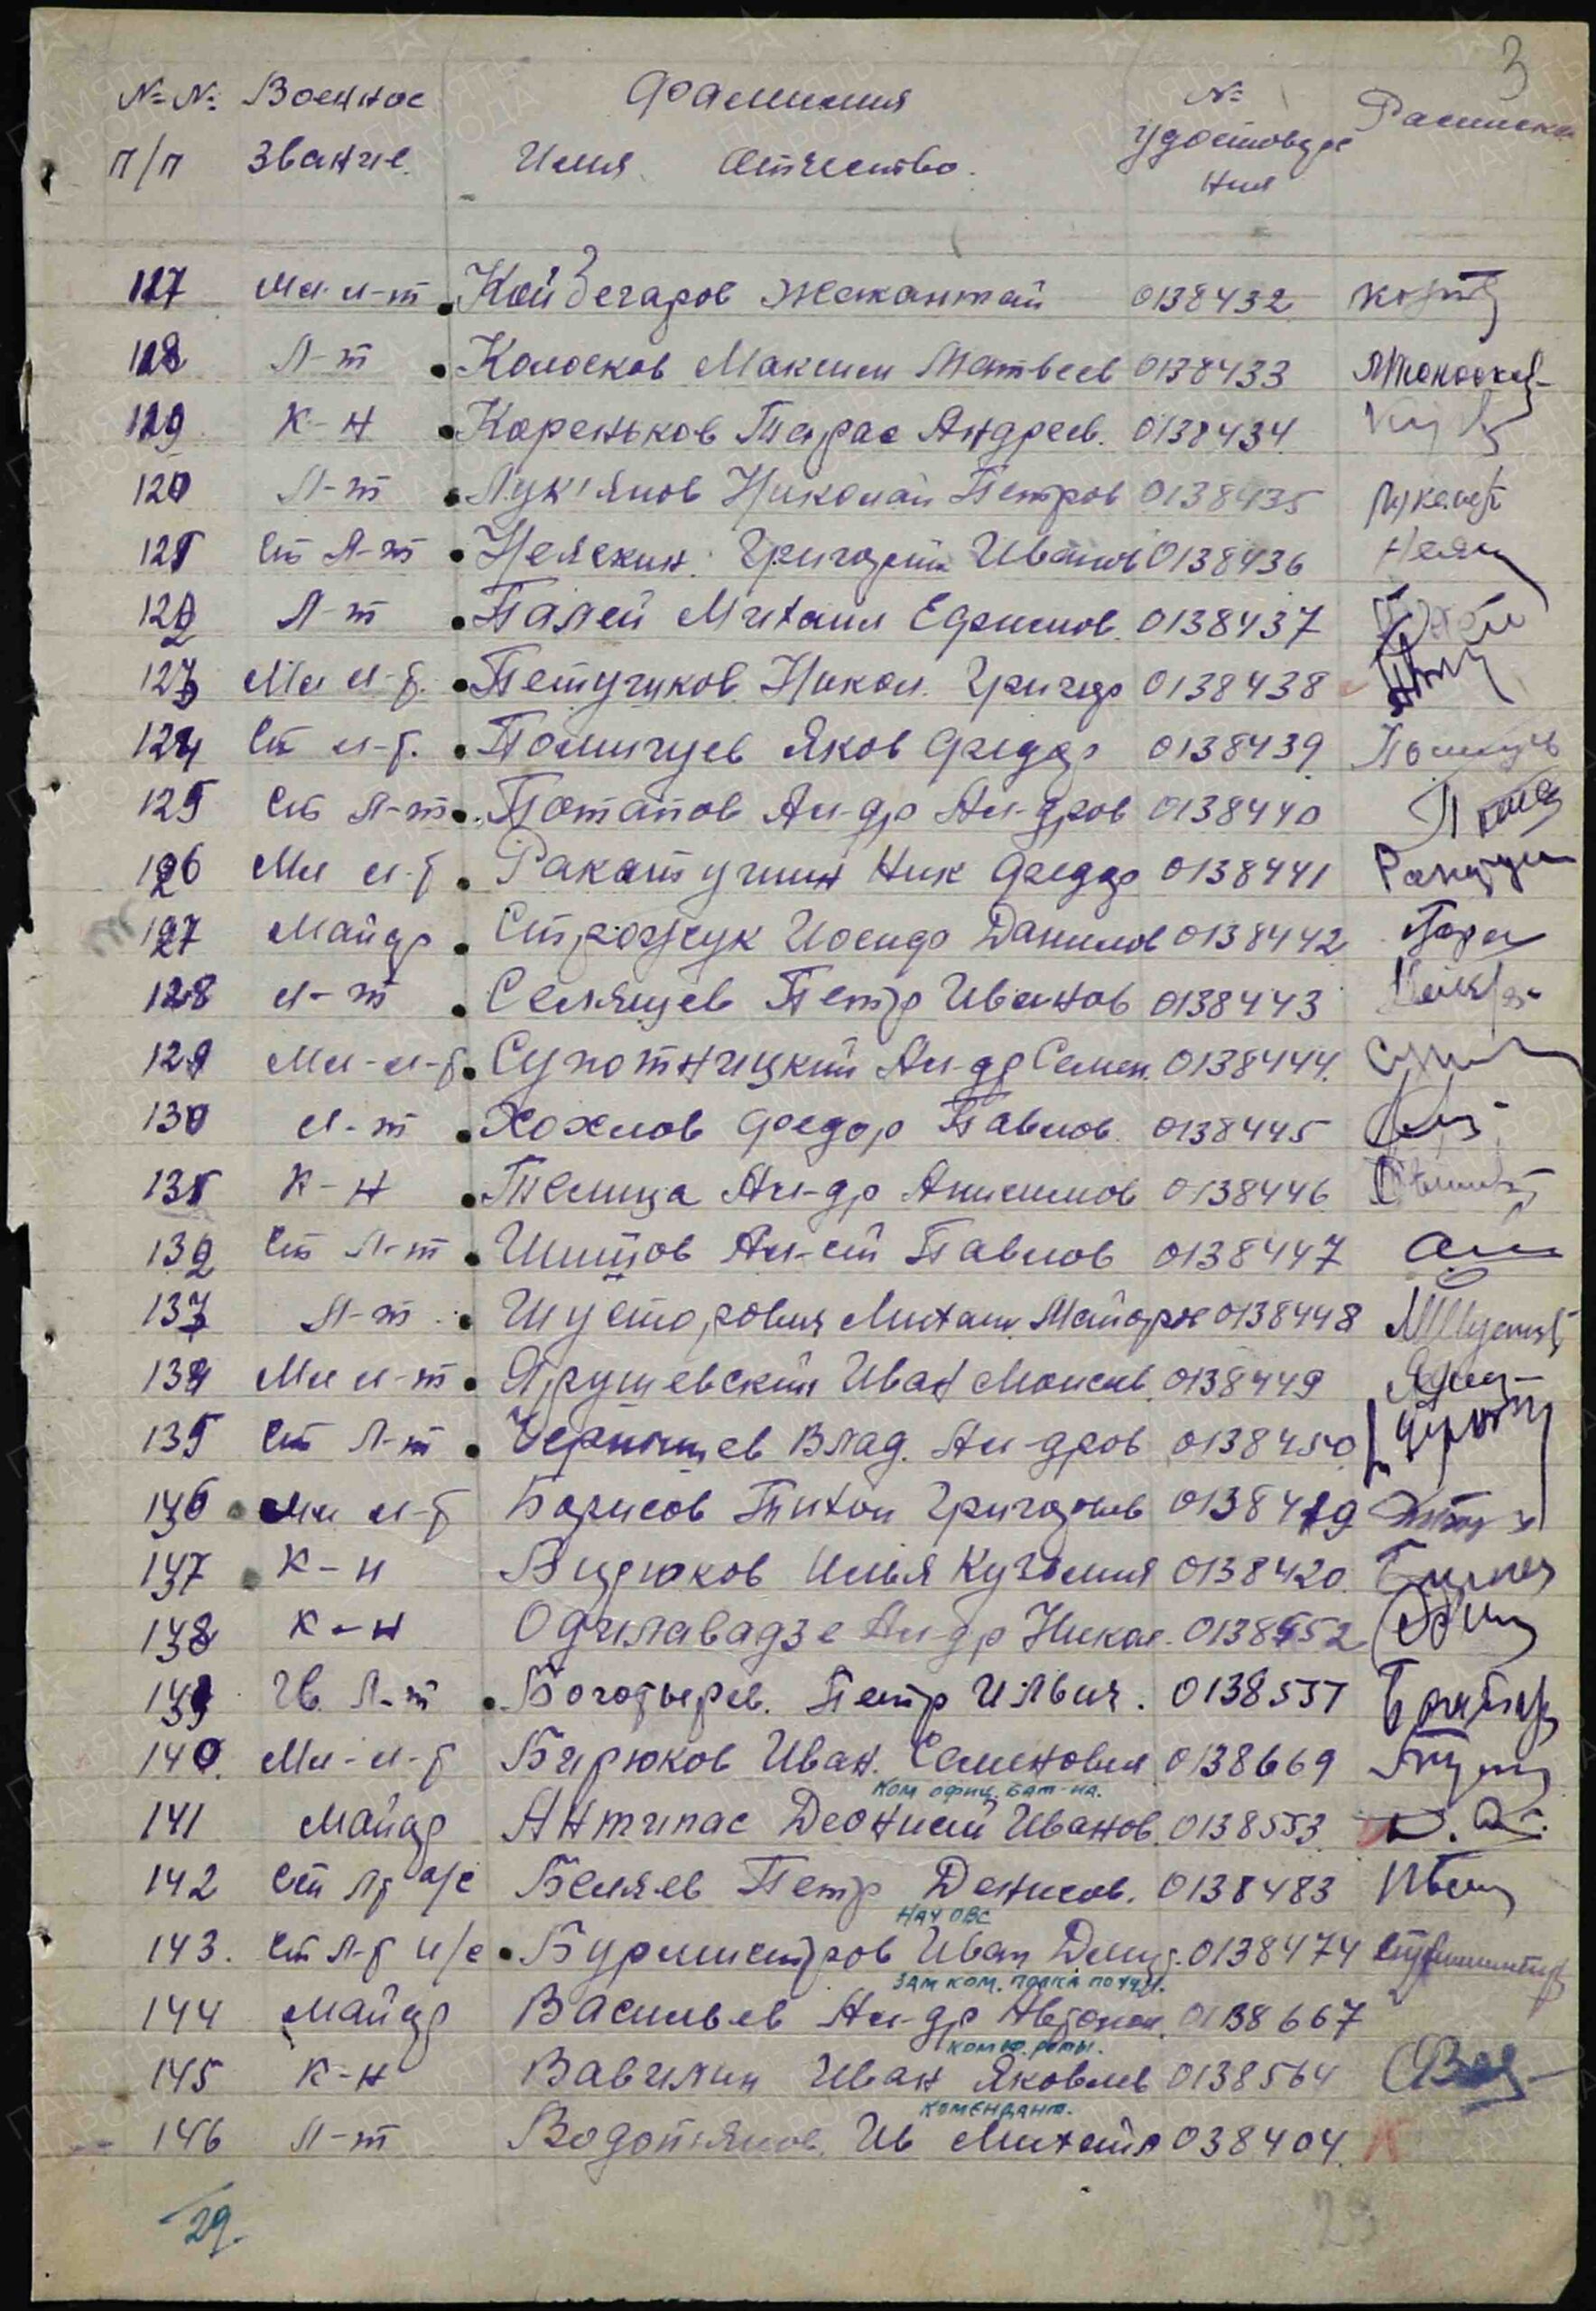 3
№ № Военное Фамилия № Расписка
п/п звание. Имя Отчество. удостовере
ния
117 Мл. л-т Койбегаров Жакантай 0138432
118 Л-т Колосков Максим Матвеев 0138433
119 К-н Кореньков Тарас Андреев. 0138434
120 Л-т Лук'янов Николай Петров 0138435
121 Ст Л-т Нелекин Григорий Иванов 0138436
122 Л-т Палей Михаил Ефимов. 0138437
123 Мл л-т. Петушков Никол. Григор 0138438
124 Ст л-т. Поминчев Яков Федор 0138439
125 Ст Л-т Потапов Ал-др Ал-дров 0138440
126 Мл л-т Ракитучин Ник Федор 0138441
127 Майор Строжук Иосиф Данилов 0138442
128 л-т Селянцев Петр Иванов 0138443
129 Мл-л-т Супотницкий Ал-др Семен. 0138444.
130 л-т Хохлов Федор Павлов. 0138445
131 К-н Телица Ал-др Анисимов 0138446
132 Ст Л-т Шитов Ал-ей Павлов 0138447
133 Л-т Шустерович Михаил 0138448
134 Мл л-т Ярушевский Иван Моисеев 0138449
135 Ст Л-т Чернышев Влад. Ал-дров 0138450
136 Мл л-т Борисов Тихон Григорьев 0138419
137 К-н Бирюков Илья Кузьмич 0138420.
138 К-н Одилавадзе Ал-др Никол. 0138552
139 Гв. Л-т Богатырев. Петр Ильич. 0138551
140. Мл-л-т Бирюков Иван. Семенович 0138669
ком офиц. бат-на.
141 Майор Антипас Деонисий Иванов. 0138553
142 Ст Л-т а/с Беляев Петр Денисов. 0138483
Нач ОВС
143. Ст Л-т и/с Бурмистров Иван Дмит. 0138474
зам ком. полка по
144 Майор Васильев Ал-др Автоном. 0138667
роты.
145 К-н Вавилин Иван Яковлев 0138564
комендант.
146 Л-т Водопьянов. Ив Михайл 038404. К
29.
29